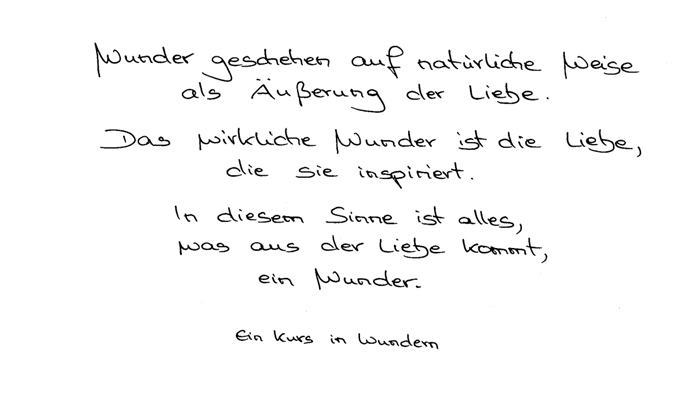 Wunder geschehen auf natürliche Weise
als Äußerung der Liebe.
Das wirkliche Wunder ist die Liebe,
die sie inspiriert.
In diesem Sinne ist alles,
was aus der Liebe kommt,
ein Wunder.
Ein Kurs in Wundern